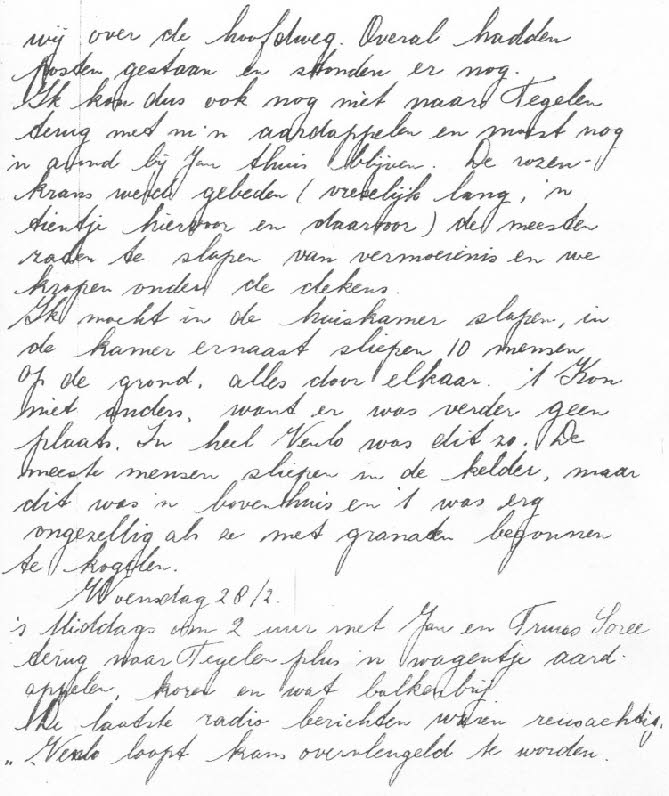 wij over de hoofdweg. Overal hadden
posten gestaan en stonden er nog.
Ik kon dus ook nog niet naar Tegelen
terug met m'n aardappelen en moest nog
'n avond bij Jan thuis blijven. De rozen-
krans werd gebeden (vreselijk lang, 'n
tientje hiervoor en daarvoor) de meesten
zaten te slapen van vermoeienis en we
kropen onder de dekens.
Ik mocht in de huiskamer slapen, in
de kamer ernaast sliepen 10 mensen
op de grond, alles door elkaar. 't Kon
niet anders, want er was verder geen
plaats. In heel Venlo was dit zo. De
meeste mensen sliepen in de kelder, maar
dit was 'n bovenhuis en 't was erg
ongezellig als ze met granaten begonnen
te kogelen.
Woensdag 28/2.
's Middags om 2 uur met Jan en Truus
terug naar Tegelen plus 'n wagentje aard-
appelen, koren en wat balkenbrij
De laatste radio berichten waren reusachtig,
"Venlo loopt kans overvleugeld te worden.